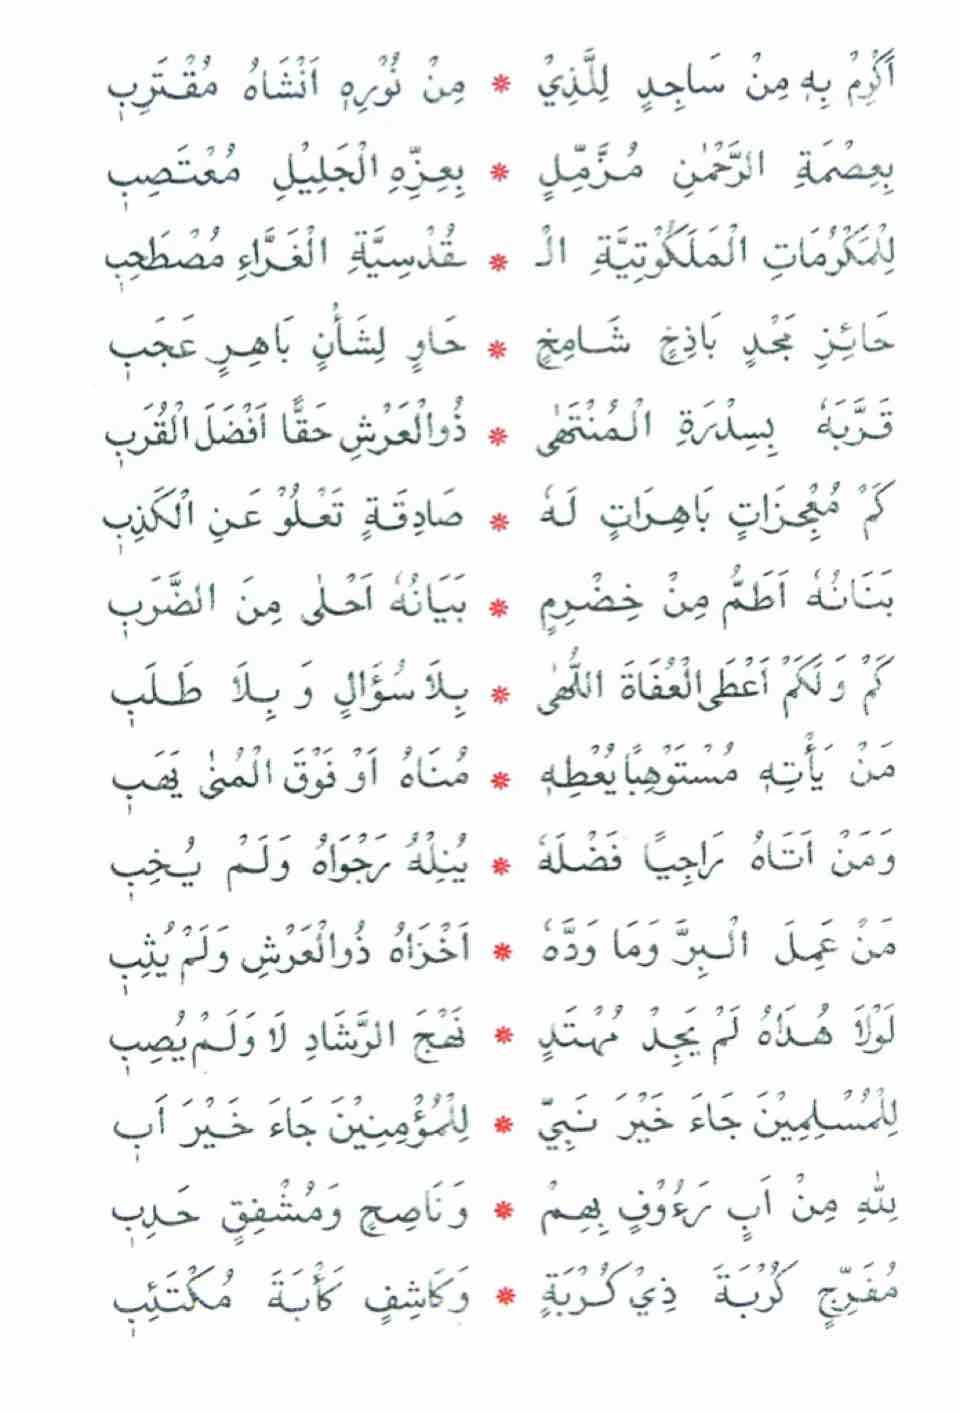 أَكْرِمْ بِهٖ مِنْ سَاجِدٍ لِلَّذِيْ * مِنْ نُوْرِهٖ اَنْشَاهُ مُقْتَرِبٖ
بِعِصْمَةِ الرَّحْمٰنِ مُزَّمِّلٍ * بِعِزِّهِ الْجَلِيْلِ مُعْتَصِبٖ
لِلْمَكْرُمَاتِ الْمَلَكُوْتِيَّةِ الْـ * ـقُدْسِيَّةِ الْغَرَّاءِ مُصْطَحِبٖ
حَائِزِ مَجْدٍ بَاذِخٍ شَامِخٍ * حَاوٍ لِشَأْنٍ بَاهِرٍ عَجَبٖ
قَرَّبَهٗ بِسِدْرَةِ الْمُنْتَهٰى * ذُوالْعَرْشِ حَقًّا اَفْضَلَ الْقُرَبٖ
كَمْ مُعْجِزَاتٍ بَاهِرَاتٍ لَهٗ * صَادِقَةٍ تَعْلُوْ عَنِ الْكَذِبٖ
بَنَانُهٗ اَطَمُّ مِنْ خِضْرِمٍ * بَيَانُهٗ اَحْلٰى مِنَ الضَّرَبٖ
كَمْ وَلَكَمْ اَعْطَى الْعُفَاةَ اللُّهٰى * بِلَا سُؤَالٍ وَ بِلَا طَلَبٖ
مَنْ يَأْتِهٖ مُسْتَوْهِبًا يُعْطِهٖ * مُنَاهُ اَوْ فَوْقَ الْمُنٰى يَهَبٖ
وَمَنْ اَتَاهُ رَاجِيًا فَضْلَهٗ * يُنِلْهُ رَجْوَاهُ وَلَمْ يُخِبٖ
مَنْ عَمِلَ الْبِرَّ وَمَا وَدَّهٗ * اَخْزَاهُ ذُوالْعَرْشِ وَلَمْ يُثِبٖ
لَوْلَا هُدَاهُ لَمْ يَجِدْ مُهْتَدٍ * نَهْجَ الرَّشَادِ لَا وَلَمْ يُصِبٖ
لِلْمُسْلِمِيْنَ جَاءَ خَيْرَ نَبِيٍّ * لِلْمُؤْمِنِيْنَ جَاءَ خَيْرَ اَبٖ
لِلّٰهِ مِنْ اَبٍ رَءُوْفٍ بِهِمْ * وَنَاصِحٍ وَمُشْفِقٍ حَدِبٖ
مُفَرِّجٍ كُرْبَةَ ذِيْ كُرْبَةٍ * وَكَاشِفٍ كَأْبَةَ مُكْتَئِبٖ